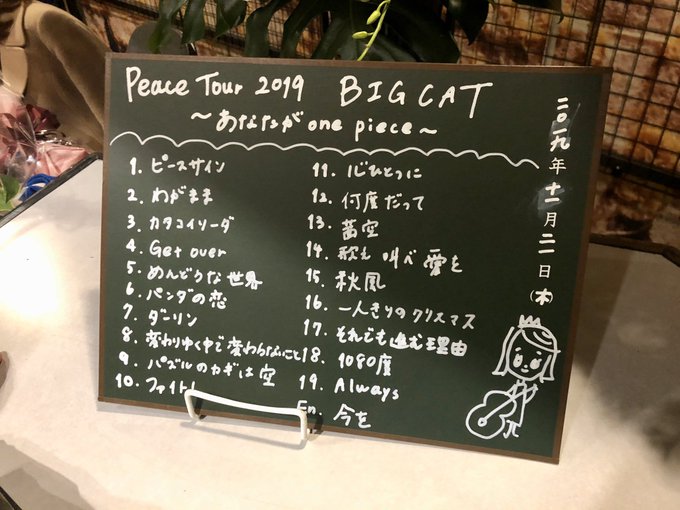 Peace Tour 2019 BIG CAT
〜あなたが one piece〜
1. ピースサイン
2. わがまま
3. カタコイリーダ
4. Get over
5. めんどうな世界
6. パンダの恋
7. ダーリン
8. 変わりゆく中で変わらないこと
9. パズルのカギは空
10. ファイト!
11. 心ひとつに
12. 何度だって
13. 茜空
14. 歌え 叫べ 愛を
15. 秋風
16. 一人きりのクリスマス
17. それでも進む理由
18. 1080度
19. Always
En. 今を
二〇一九年十一月二一日(木)